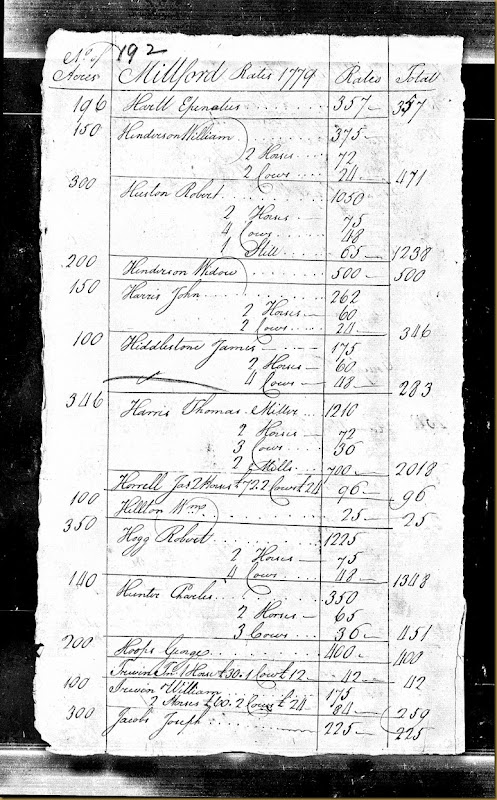 192
No. of Acres Millford Rates 1779 Rates Total
196 Harll 357 357
150 Henderson William 375
2 Horses 72
2 Cows 24 471
300 Huston Robert 1050
2 Horses 75
4 Cows 48
1 Still 65 1238
200 Henderson Widow 500 500
150 Harris John 262
2 Horses 60
2 Cows 24 346
100 Hiddlestone James 175
2 Horses 60
4 Cows 48 283
346 Harris Thomas Miller 1210
2 Horses 72
3 Cows 36
2 Mills 700 2018
Horrell Jas 2 Horses £72. 2 Cows £24 96 96
100 Hillton Wm 25 25
350 Hogg Robert 1225
2 Horses 75
4 Cows 48 1348
140 Hunter Charles 350
2 Horses 65
3 Cows 36 451
200 Hoops George 400 400
1 Horse £30. 1 Cow £12 42 42
100 William 175
2 Horses £60. 2 Cows £24 84 259
300 Jacobs Joseph 225 225